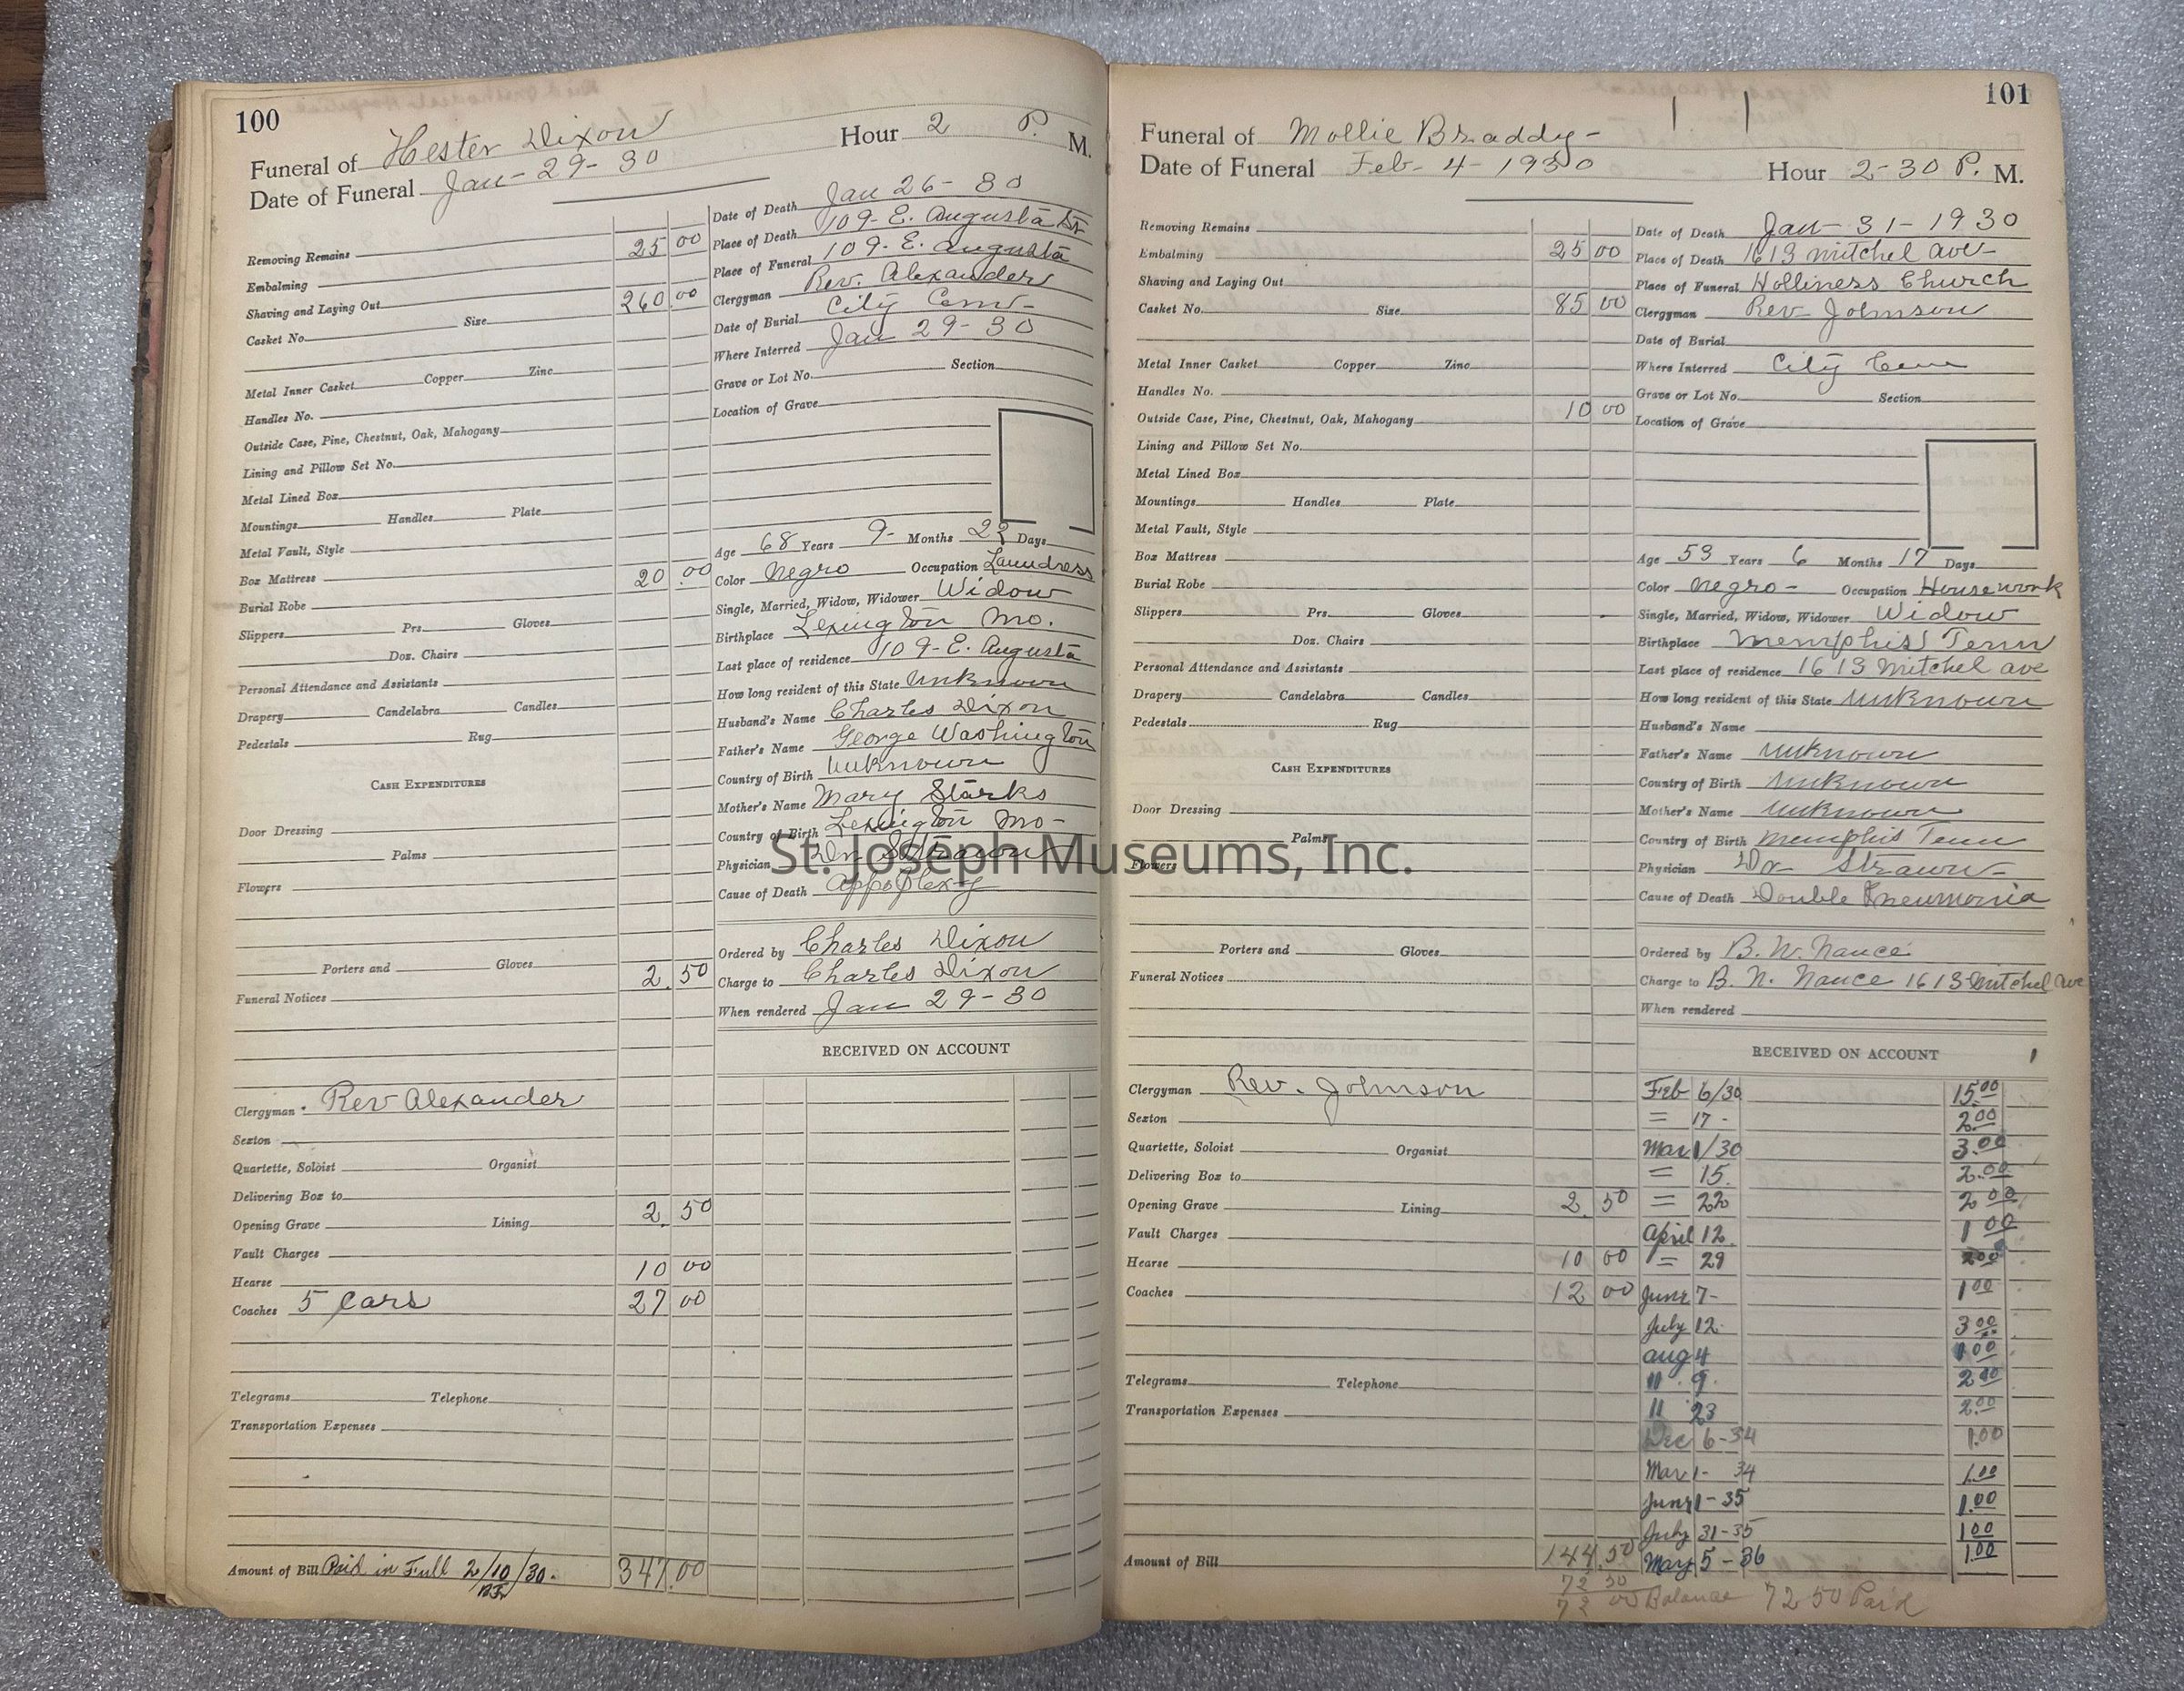 100
Funeral of Hester Dixon Hour 2 P. M.
Date of Funeral Jan-29-30
Removing Remains
Embalming 25 00
Shaving and Laying Out
Casket No. Size 260.00
Metal Inner Casket Copper Zinc
Handles No.
Outside Case, Pine, Chestnut, Oak, Mahogany
Lining and Pillow Set No.
Metal Lined Box
Mountings Handles Plate
Metal Vault, Style
Box Mattress
Burial Robe 20.00
Slippers Prs. Gloves
Doz. Chairs
Personal Attendance and Assistants
Drapery Candelabra Candles
Pedestals Rug
CASH EXPENDITURES
Door Dressing
Palms
Flowers
Porters and Gloves
Funeral Notices 2.50
Clergyman Rev Alexander
Sexton
Quartette, Soloist Organist
Delivering Box to
Opening Grave Lining 2.50
Vault Charges
Hearse 10 00
Coaches 5 Cars 27 00
Telegrams Telephone
Transportation Expenses
Amount of Bill Paid in Full 2/10/30. 347.00
Date of Death Jan 26-30
Place of Death 109-E. Augusta St
Place of Funeral 109-E. Augusta
Clergyman Rev. Alexander
Date of Burial City Cem-
Where Interred Jan 29-30
Grave or Lot No. Section
Location of Grave
Age 68 Years 9- Months 22 Days
Color Negro Occupation Laundress
Single, Married, Widow, Widower Widow
Birthplace Lexington Mo.
Last place of residence 109-E. Augusta
How long resident of this State Unknown
Husband's Name Charles Dixon
Father's Name George Washington
Country of Birth Unknown
Mother's Name Mary Starks
Country of Birth Lexington Mo-
Physician Dr Strawn
Cause of Death Appoplexy
Ordered by Charles Dixon
Charge to Charles Dixon
When rendered Jan 29-30
RECEIVED ON ACCOUNT
101
Funeral of Mollie Braddy-
Date of Funeral Feb-4-1930 Hour 2-30 P. M.
Removing Remains
Embalming 25 00
Shaving and Laying Out
Casket No. Size 85 00
Metal Inner Casket Copper Zinc
Handles No.
Outside Case, Pine, Chestnut, Oak, Mahogany 10 00
Lining and Pillow Set No.
Metal Lined Box
Mountings Handles Plate
Metal Vault, Style
Box Mattress
Burial Robe
Slippers Prs. Gloves
Doz. Chairs
Personal Attendance and Assistants
Drapery Candelabra Candles
Pedestals Rug
CASH EXPENDITURES
Door Dressing
Palms
Flowers
Porters and Gloves
Funeral Notices
Clergyman Rev. Johnson
Sexton
Quartette, Soloist Organist
Delivering Box to
Opening Grave Lining 2.50
Vault Charges
Hearse 10 00
Coaches 12 00
Telegrams Telephone
Transportation Expenses
Amount of Bill 144.50
72 50
72 00 Balance 72 50 Paid
Date of Death Jan-31-1930
Place of Death 1613 Mitchel Ave-
Place of Funeral Holliness Church
Clergyman Rev-Johnson
Date of Burial
Where Interred City Cem
Grave or Lot No. Section
Location of Grave
Age 53 Years 6 Months 17 Days
Color Negro- Occupation Housework
Single, Married, Widow, Widower Widow
Birthplace Memphis Tenn
Last place of residence 1613 Mitchel ave
How long resident of this State Unknown
Husband's Name
Father's Name Unknown
Country of Birth Unknown
Mother's Name Unknown
Country of Birth Memphis Tenn
Physician Dr Strawn-
Cause of Death Double Pneumonia
Ordered by B. N. Nance
Charge to B. N. Nance 1613 Mitchel ave
When rendered
RECEIVED ON ACCOUNT
Feb 6/30 15.00
= 17- 2.00
Mar 1/30 3.00
= 15. 2.00
= 22 2 00
April 12. 1 00
= 29 2 00
June 7- 1 00
July 12. 3 00
Aug 4 1.00
11 . 9. 2 00
11 23 2.00
Dec 6-34 1.00
Mar 1- 34 1.00
June 1-35 1.00
July 31-35 1.00
May 5-36 1.00
St. Joseph Museums, Inc.